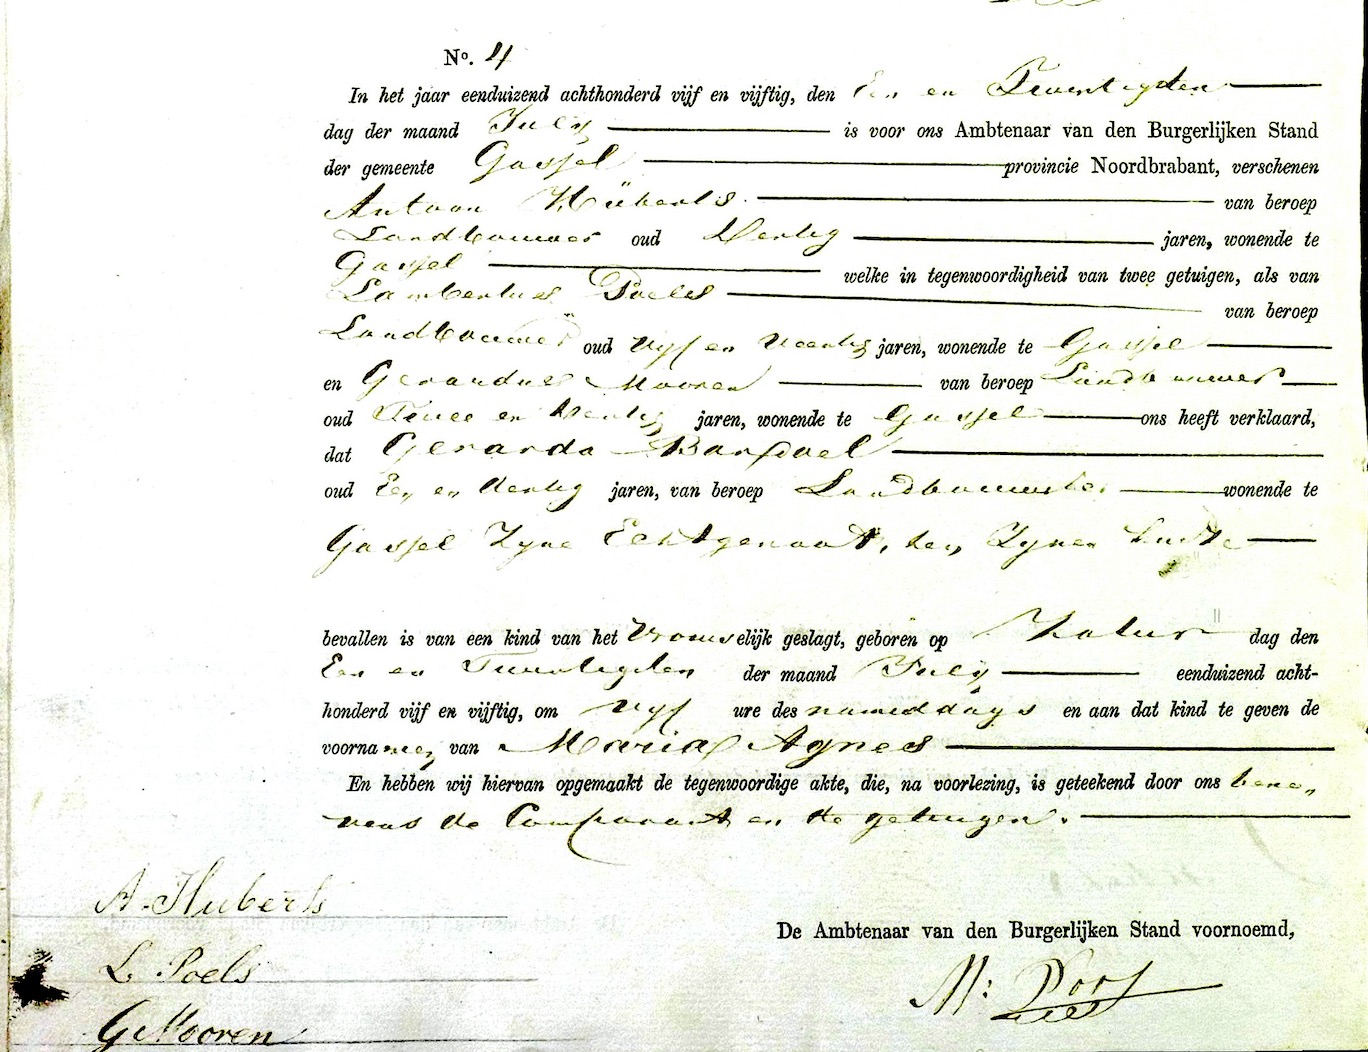 No. 4
In het jaar eenduizend achthonderd vijf en vijftig, den Een en Twentigden
dag der maand July is voor ons Ambtenaar van den Burgerlijken Stand
der gemeente Gassel provincie Noordbrabant, verschenen
Antoon Hüberts van beroep
Landbouwer oud Dertig jaren, wonende te
Gassel welke in tegenwoordigheid van twee getuigen, als van
Lambertus Poels van beroep
Landbouwer oud Vyf en Veertig jaren, wonende te Gassel
en Gerardus Mooren van beroep Landbouwer
oud Twee en Dertig jaren, wonende te Gassel ons heeft verklaard,
dat Gerarda
oud Een en dertig jaren, van beroep wonende te
Gassel Zyne Echtgenoot, ten Zynen huize
bevallen is van een kind van het Vrouwelijk geslagt, geboren op Zatur dag den
Een en Twentigden der maand July eenduizend acht-
honderd vijf en vijftig, om Vyf ure des namiddags en aan dat kind te geven de
voornamen van Maria Agnes
En hebben wij hiervan opgemaakt de tegenwoordige akte, die, na voorlezing, is geteekend door ons bene„
vens de Comparant en de getuigen.
A. Huberts
De Ambtenaar van den Burgerlijken Stand voornoemd,
L Poels
M:
G Mooren